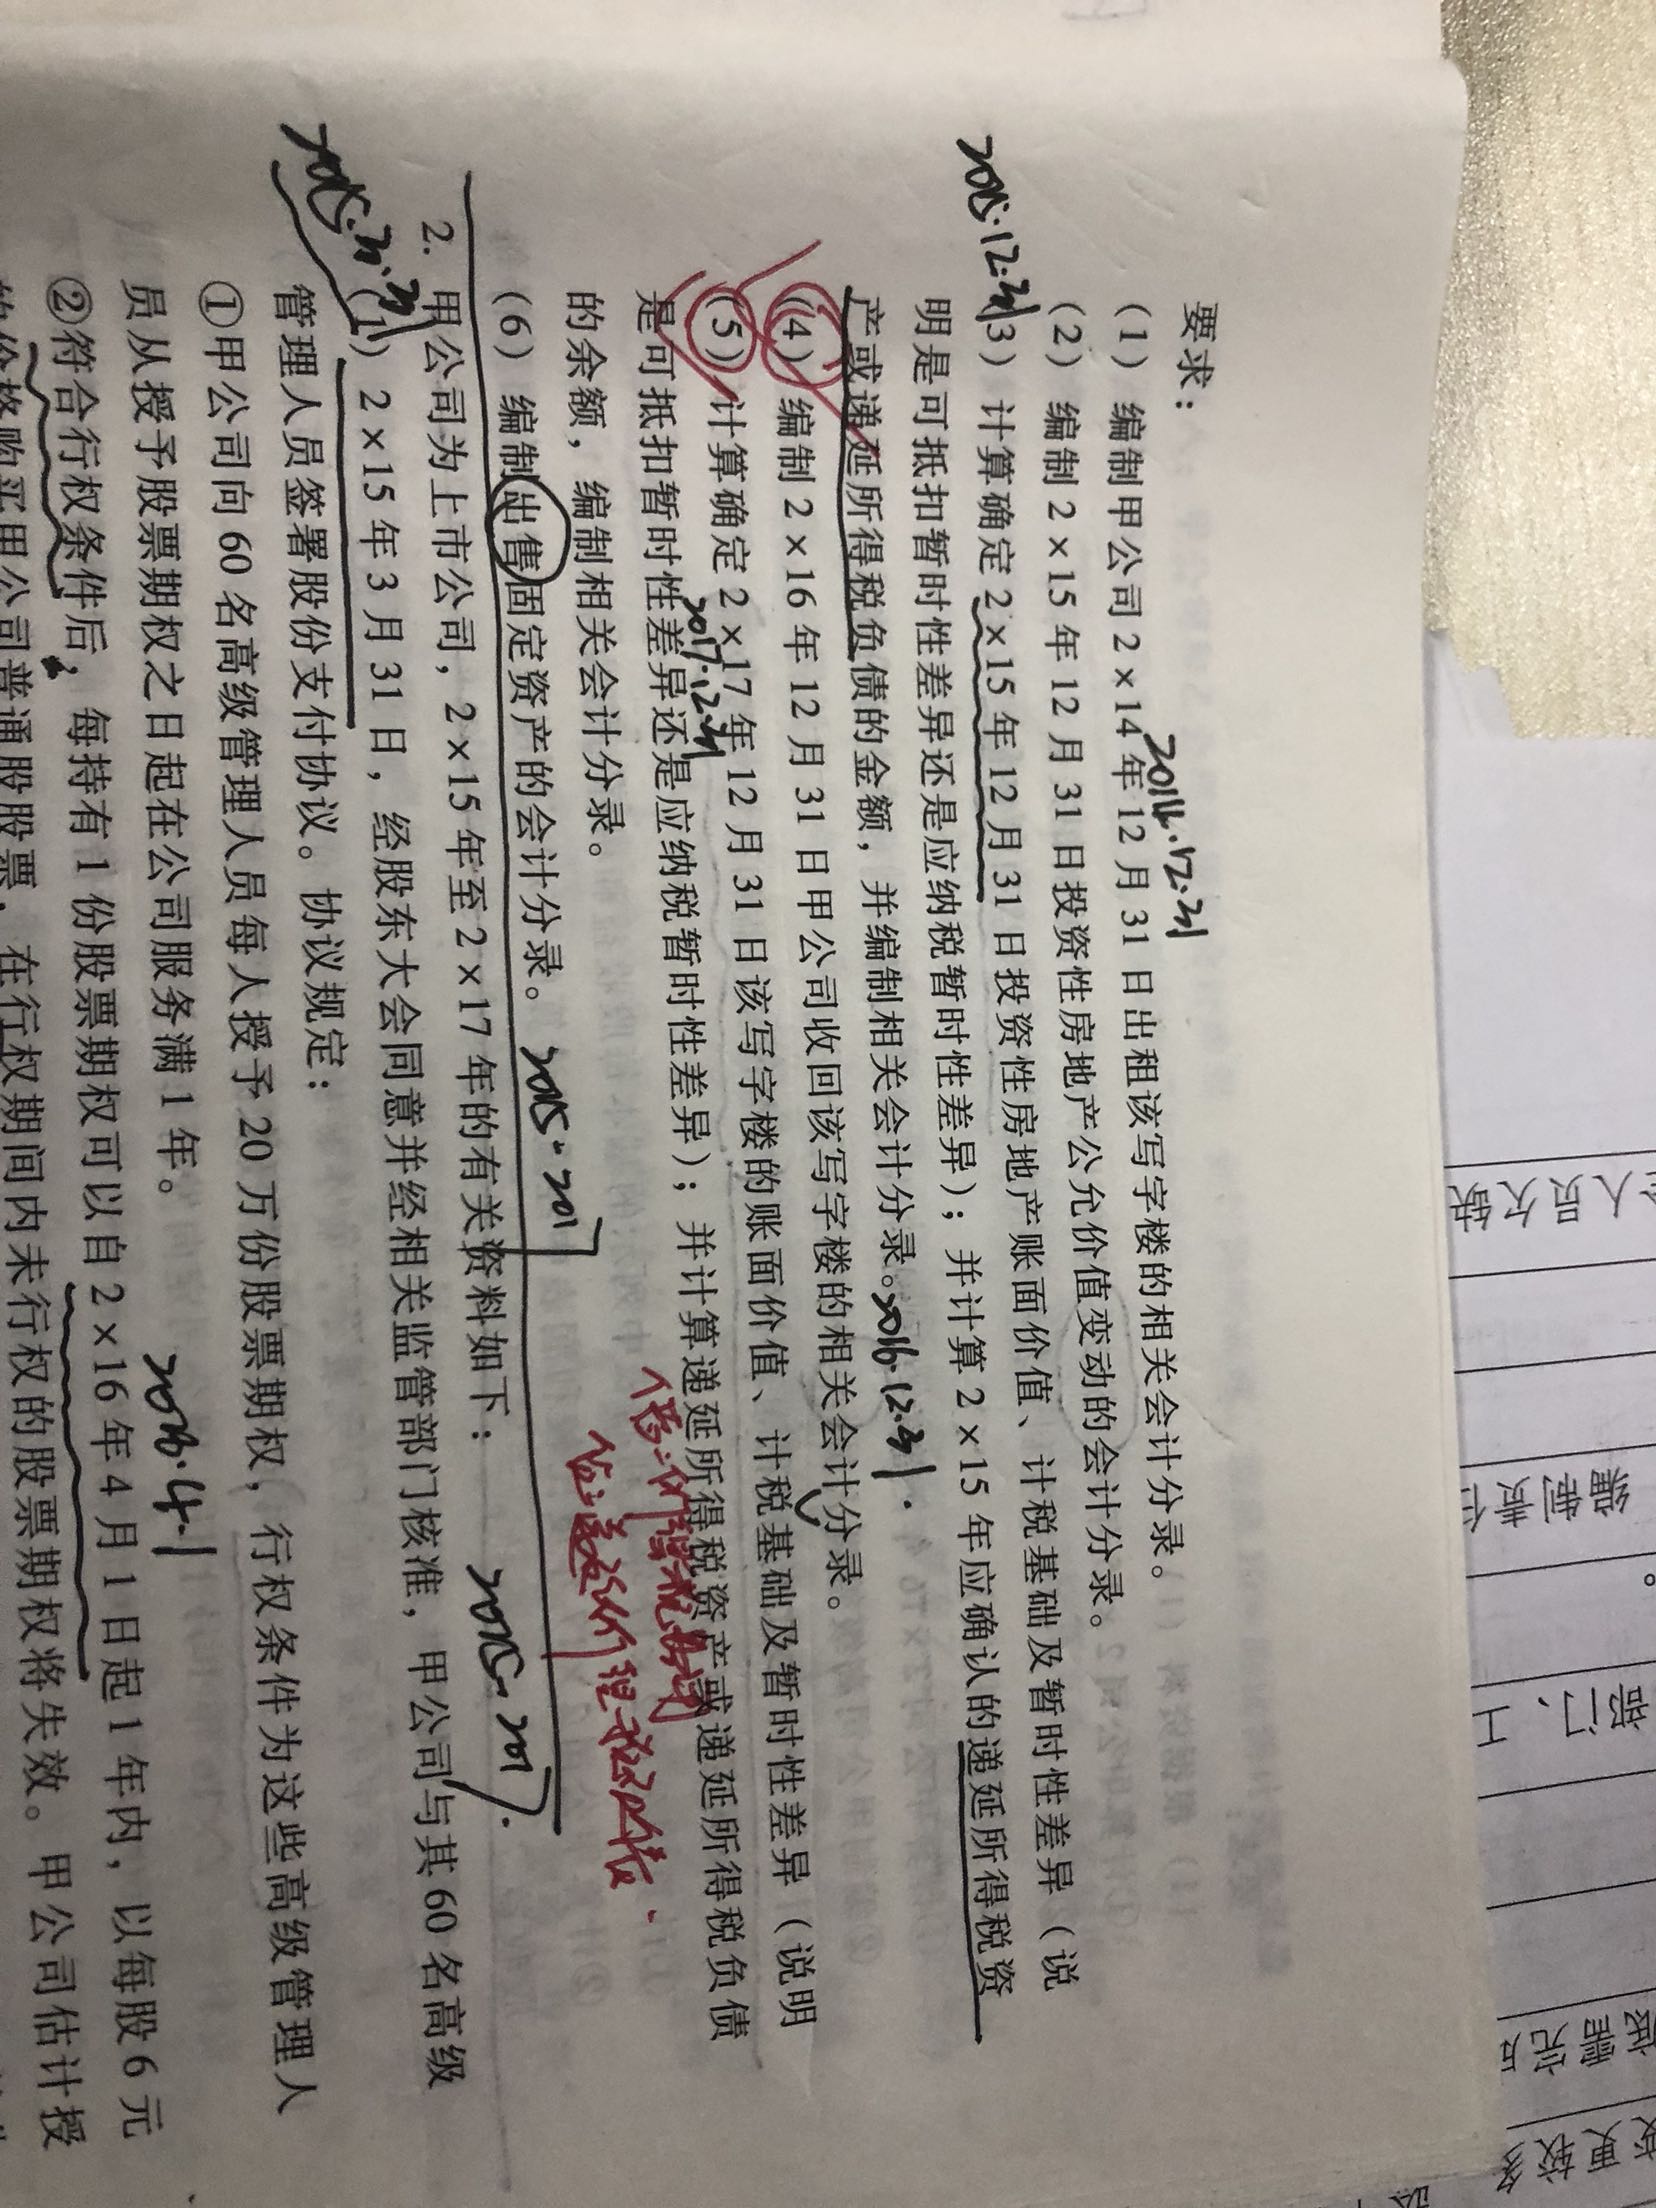 要求：
（1）编制甲公司2×14年12月31日出租该写字楼的相关会计分录。
2014.12.31
（2）编制2×15年12月31日投资性房地产公允价值变动的会计分录。
2015.12.31
（3）计算确定2×15年12月31日投资性房地产账面价值、计税基础及暂时性差异（说
明是可抵扣暂时性差异还是应纳税暂时性差异）；并计算2×15年应确认的递延所得税资
产或递延所得税负债的金额，并编制相关会计分录。
2016.12.31.
（4）编制2×16年12月31日甲公司收回该写字楼的相关会计分录。
（5）计算确定2×17年12月31日该写字楼的账面价值、计税基础及暂时性差异（说明
2017.12.31
是可抵扣暂时性差异还是应纳税暂时性差异）；并计算递延所得税资产或递延所得税负债
的余额，编制相关会计分录。
（6）编制出售固定资产的会计分录。
2015-201
2.甲公司为上市公司，2×15年至2×17年的有关资料如下：
2015-201
2015.3.31
（1）2×15年3月31日，经股东大会同意并经相关监管部门核准，甲公司与其60名高级
管理人员签署股份支付协议。协议规定：
①甲公司向60名高级管理人员每人授予20万份股票期权，行权条件为这些高级管理人
员从授予股票期权之日起在公司服务满1年。
2016.4.1
②符合行权条件后，每持有1份股票期权可以自2×16年4月1日起1年内，以每股6元
的价格购买甲公司普通股股票，在行权期间内未行权的股票期权将失效。甲公司估计授